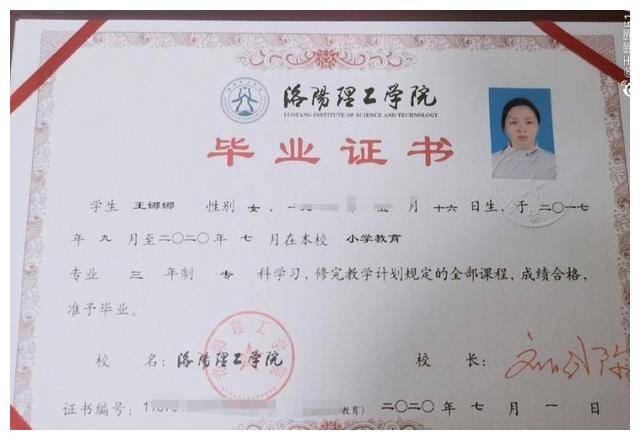 洛阳理工学院
LUOYANG INSTITUTE OF SCIENCE AND TECHNOLOGY
毕业证书
学生 王娜娜 性别 女, 一九 五 月 十六 日生, 于 二〇一七
年 九 月至二〇二〇年 七 月在本校 小学教育
专业 三 年制 专 科学习, 修完教学计划规定的全部课程, 成绩合格,
准予毕业。
校 名: 洛阳理工学院 校 长:
证书编号: 教育) 二〇二〇 年 七 月 一 日